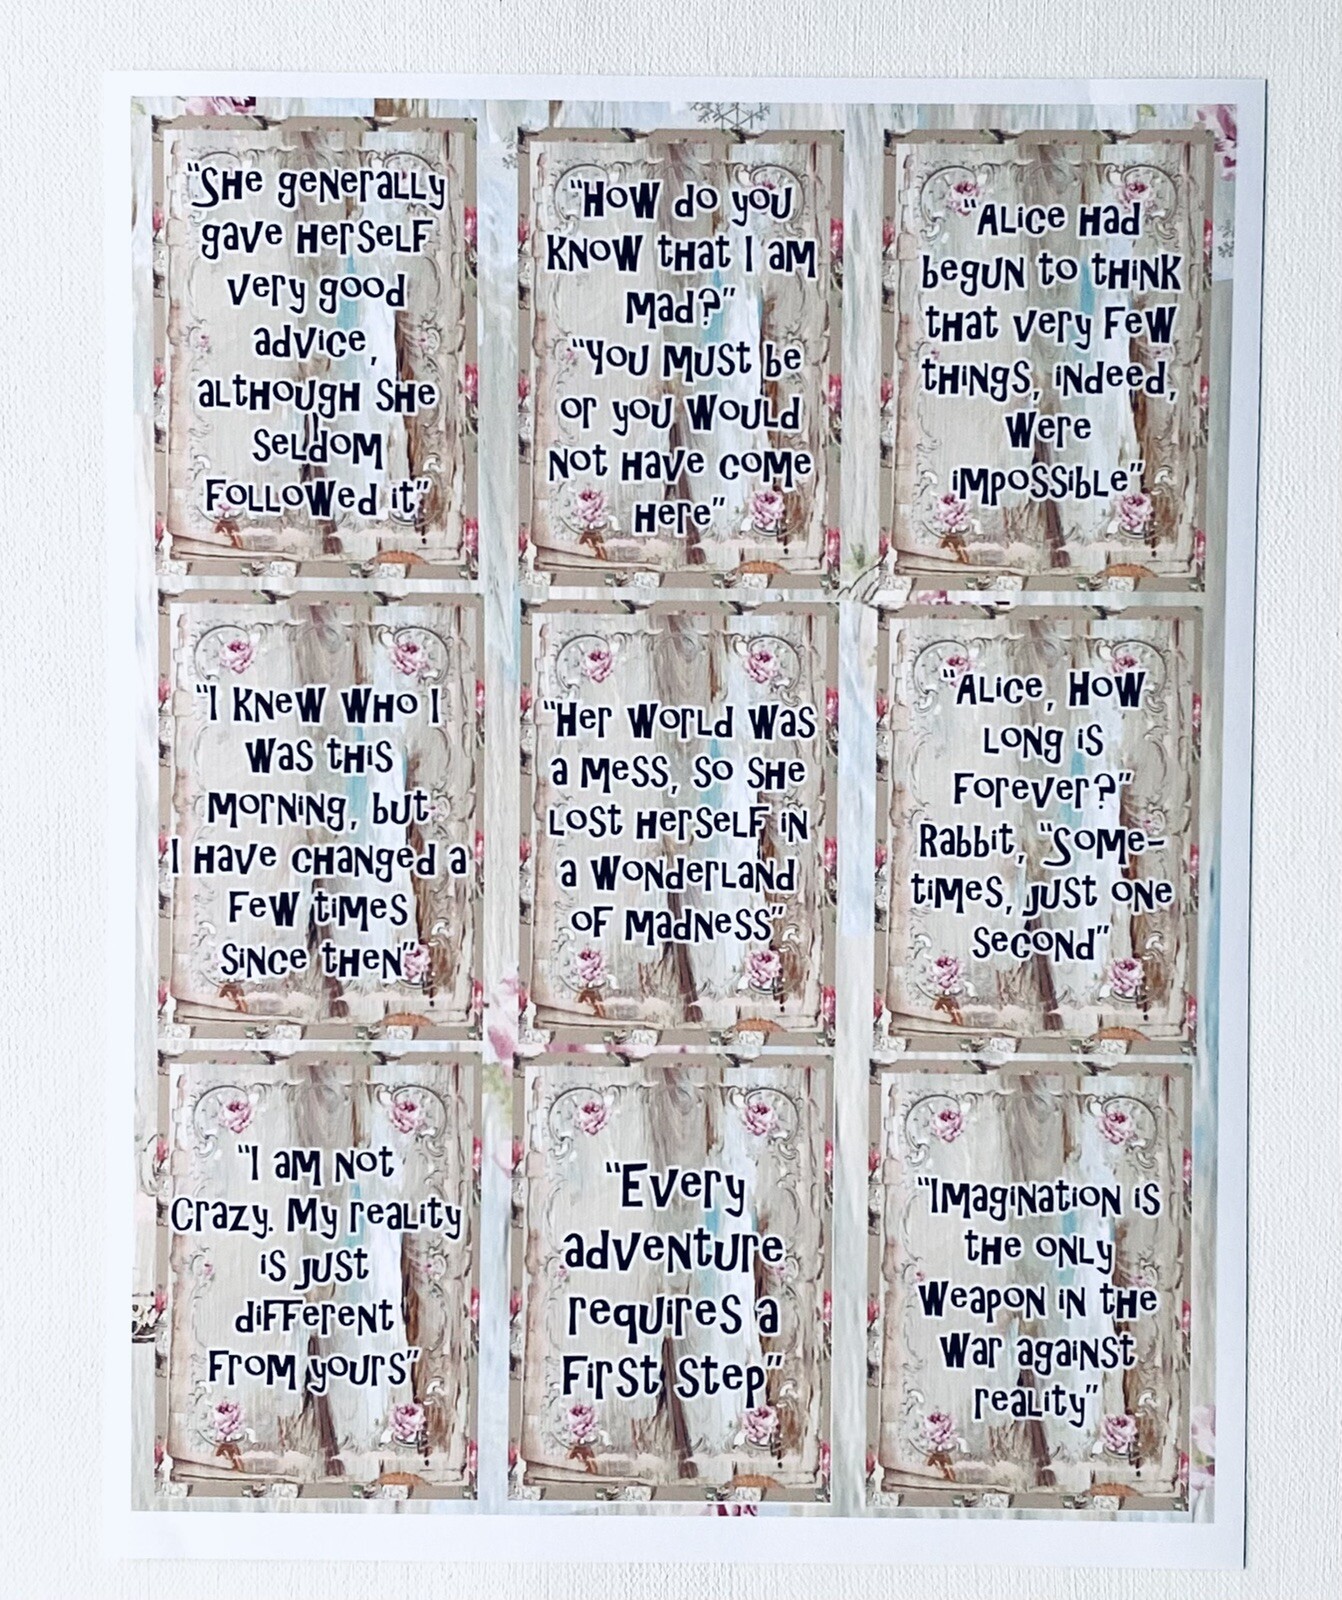 "She generally
gave herself
very good
advice,
although she
seldom
followed it"
"How do you
know that I am
mad?"
"You must be
or you would
not have come
here"
"Alice had
begun to think
that very few
things, indeed,
were
impossible"
"I knew who I
was this
morning, but
I have changed a
few times
since then"
"Her world was
a mess, so she
lost herself in
a wonderland
of madness"
"Alice, how
long is
forever?"
Rabbit, "Some-
times, just one
second"
"I am not
crazy. My reality
is just
different
from yours"
"Every
adventure
requires a
first step"
"Imagination is
the only
weapon in the
war against
reality"